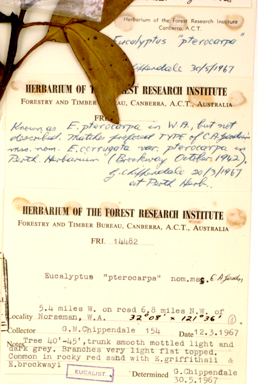 Herbarium of the Forest Research Institute
Canberra, A.C.T.
Eucalyptus "pterocarpa"
Chippendale 30/5/1967
HERBARIUM OF THE FOREST RESEARCH INSTITUTE
FORESTRY AND TIMBER BUREAU, CANBERRA, A.C.T., AUSTRALIA
FRI
Known as E. pterocarpa in W.A., but not
described. Matches proposed TYPE of C.A. Gardner's
mss. nom. E. corrugata var. pterocarpa in
Perth Herbarium (Brockway October 1942).
G. Chippendale 20/3/1967
at Perth Herb.
HERBARIUM OF THE FOREST RESEARCH INSTITUTE
FORESTRY AND TIMBER BUREAU, CANBERRA, A.C.T., AUSTRALIA
FRI. 14482
Eucalyptus "pterocarpa" nom.ms.
5.4 miles W. on road 6.8 miles N.W. of
Locality Norseman, W.A. 32°08' x 121°36'
Collector G.M.Chippendale 154 Date 12.3.1967
Notes Tree 40'-45', trunk smooth mottled light and
dark grey. Branches very light flat topped.
Common in rocky red sand with E.griffithsii &
E.brockwayi
EUCALIST
Determined G.Chippendale
30.5.1967